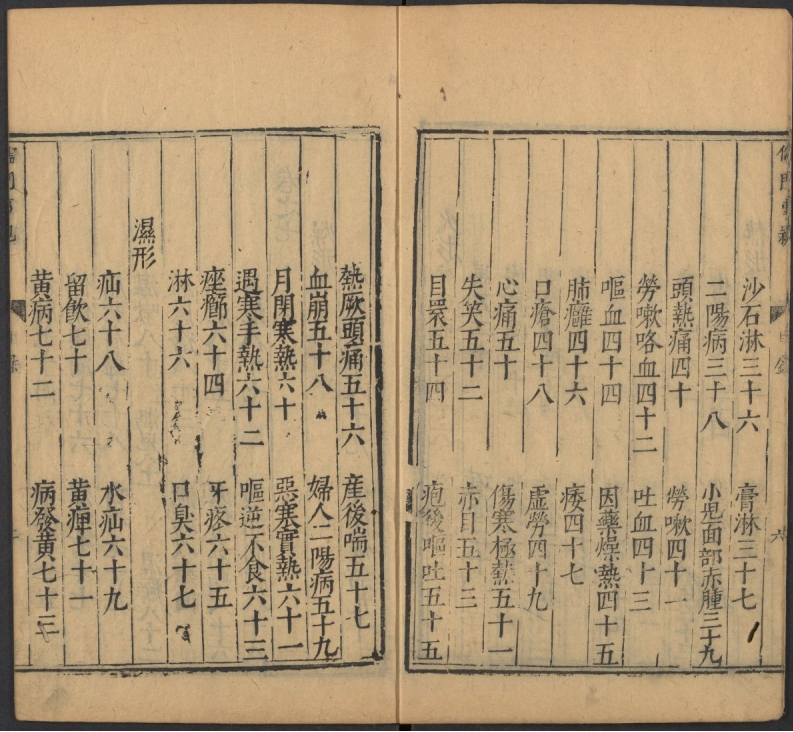 沙石淋三十六 膏淋三十七
二陽病三十八 小兒面部赤腫三十九
頭熱痛四十 勞嗽四十一
勞嗽咯血四十二 吐血四十三
嘔血四十四 因藥燥熱四十五
肺癰四十六 痿四十七
口瘡四十八 虛勞四十九
心痛五十 傷寒極熱五十一
失笑五十二 赤目五十三
目睘五十四 疱後嘔吐五十五
熱厥頭痛五十六 産後喘五十七
血崩五十八 婦人二陽病五十九
月閉寒熱六十 惡寒實熱六十一
遇寒手熱六十二 嘔逆不食六十三
痤癤六十四 牙疼六十五
淋六十六 口臭六十七
濕形
疝六十八 水疝六十九
留飲七十 黄疸七十一
黄病七十二 病發黄七十三